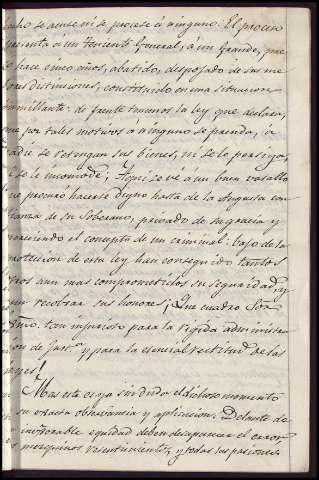 dicho se acuse ni se procese á ninguno. El proceso
presenta á un Teniente General, á un Grande, que
hace cinco años, abatido, despojado de sus me
ores distinciones, constituido en una situacion
umillante: de frente tenemos la ley que declara,
que por tales motivos á ninguno se prenda, á
adie se retengan sus bienes, ni se le persiga,
se le incomode; Aqui se vé á un buen vasallo
que procuró hacerse digno hasta de la Augusta con
fianza de su Soberano, privado de su gracia y
mereciendo el concepto de un criminal: bajo de la
proteccion de esta ley han conseguido tantos
otros aun mas comprometidos su seguridad, y
aun recobrar sus honores; Que cuadro
tan injurioso para la rigida administra
cion de Just.ª y para la esencial rectitud de las
leyes!
Mas este es ya sin duda el dichoso momento
su exacta observancia y aplicacion. Delante de
inexorable equidad deben desaparecer el error
mezquinos resentimientos, y todas las pasiones.